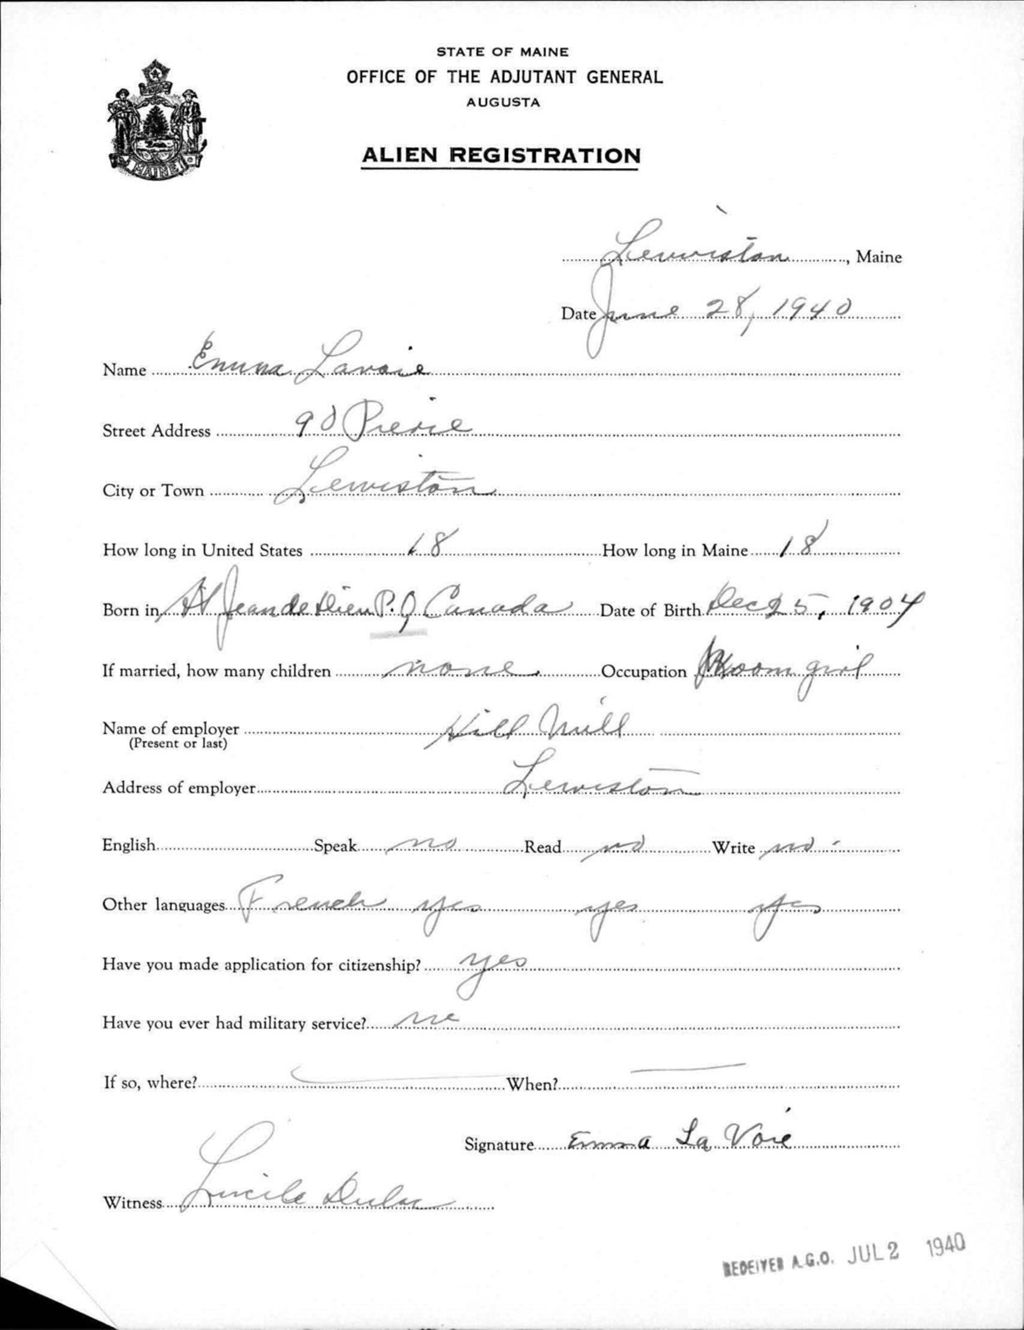 STATE OF MAINE
OFFICE OF THE ADJUTANT GENERAL
AUGUSTA
ALIEN REGISTRATION
MAINE
Lewiston, Maine
Date June 28, 1940
Name Emma Lavoie
Street Address 90 Pierce
City or Town Lewiston
How long in United States 18 How long in Maine 18
Born in St Jean de Dieu P.Q Canada Date of Birth Dec 25, 1904
If married, how many children none Occupation Room girl
Name of employer Hill Mill
(Present or last)
Address of employer Lewiston
English Speak no Read no Write no
Other languages French yes yes yes
Have you made application for citizenship? yes
Have you ever had military service? no
If so, where? When?
Signature Emma La Voie
Witness Lucile
RECEIVED A.G.O. JUL 2 1940